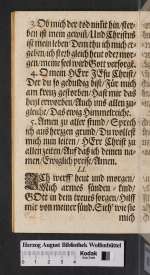 3. Ob mich der tod nimt hin/ster-
ben ist mein gewin/Und Christus
ist mein leben/Dem thu ich mich er-
geben/ich sterb gleich heut oder mor-
gen/meine seel wird Gott versorgē.
4. O mein HErr JEsu Christ/
Der du so gedultig bist/Für mich
am kreuz gestorbē/Hast mir das
heyl erworben/Auch uns allen zu-
gleiche/Das ewig Himmelreiche.
5. Amen zu aller stund/Sprech
ich aus herzen grund/Du wollest
mich nun leiten/HErr Christ zu
allen zeiten/Auf daß ich deinen na-
men/Ewiglich preise/Amen.
LI.
ICh werff heut und morgen/
mich armes sünden kind/
GOtt in dem treues sorgen/Hilff
mir von meiner sünd.
mich
Herzog August Bibliothek Wolfenbüttel
Kodak